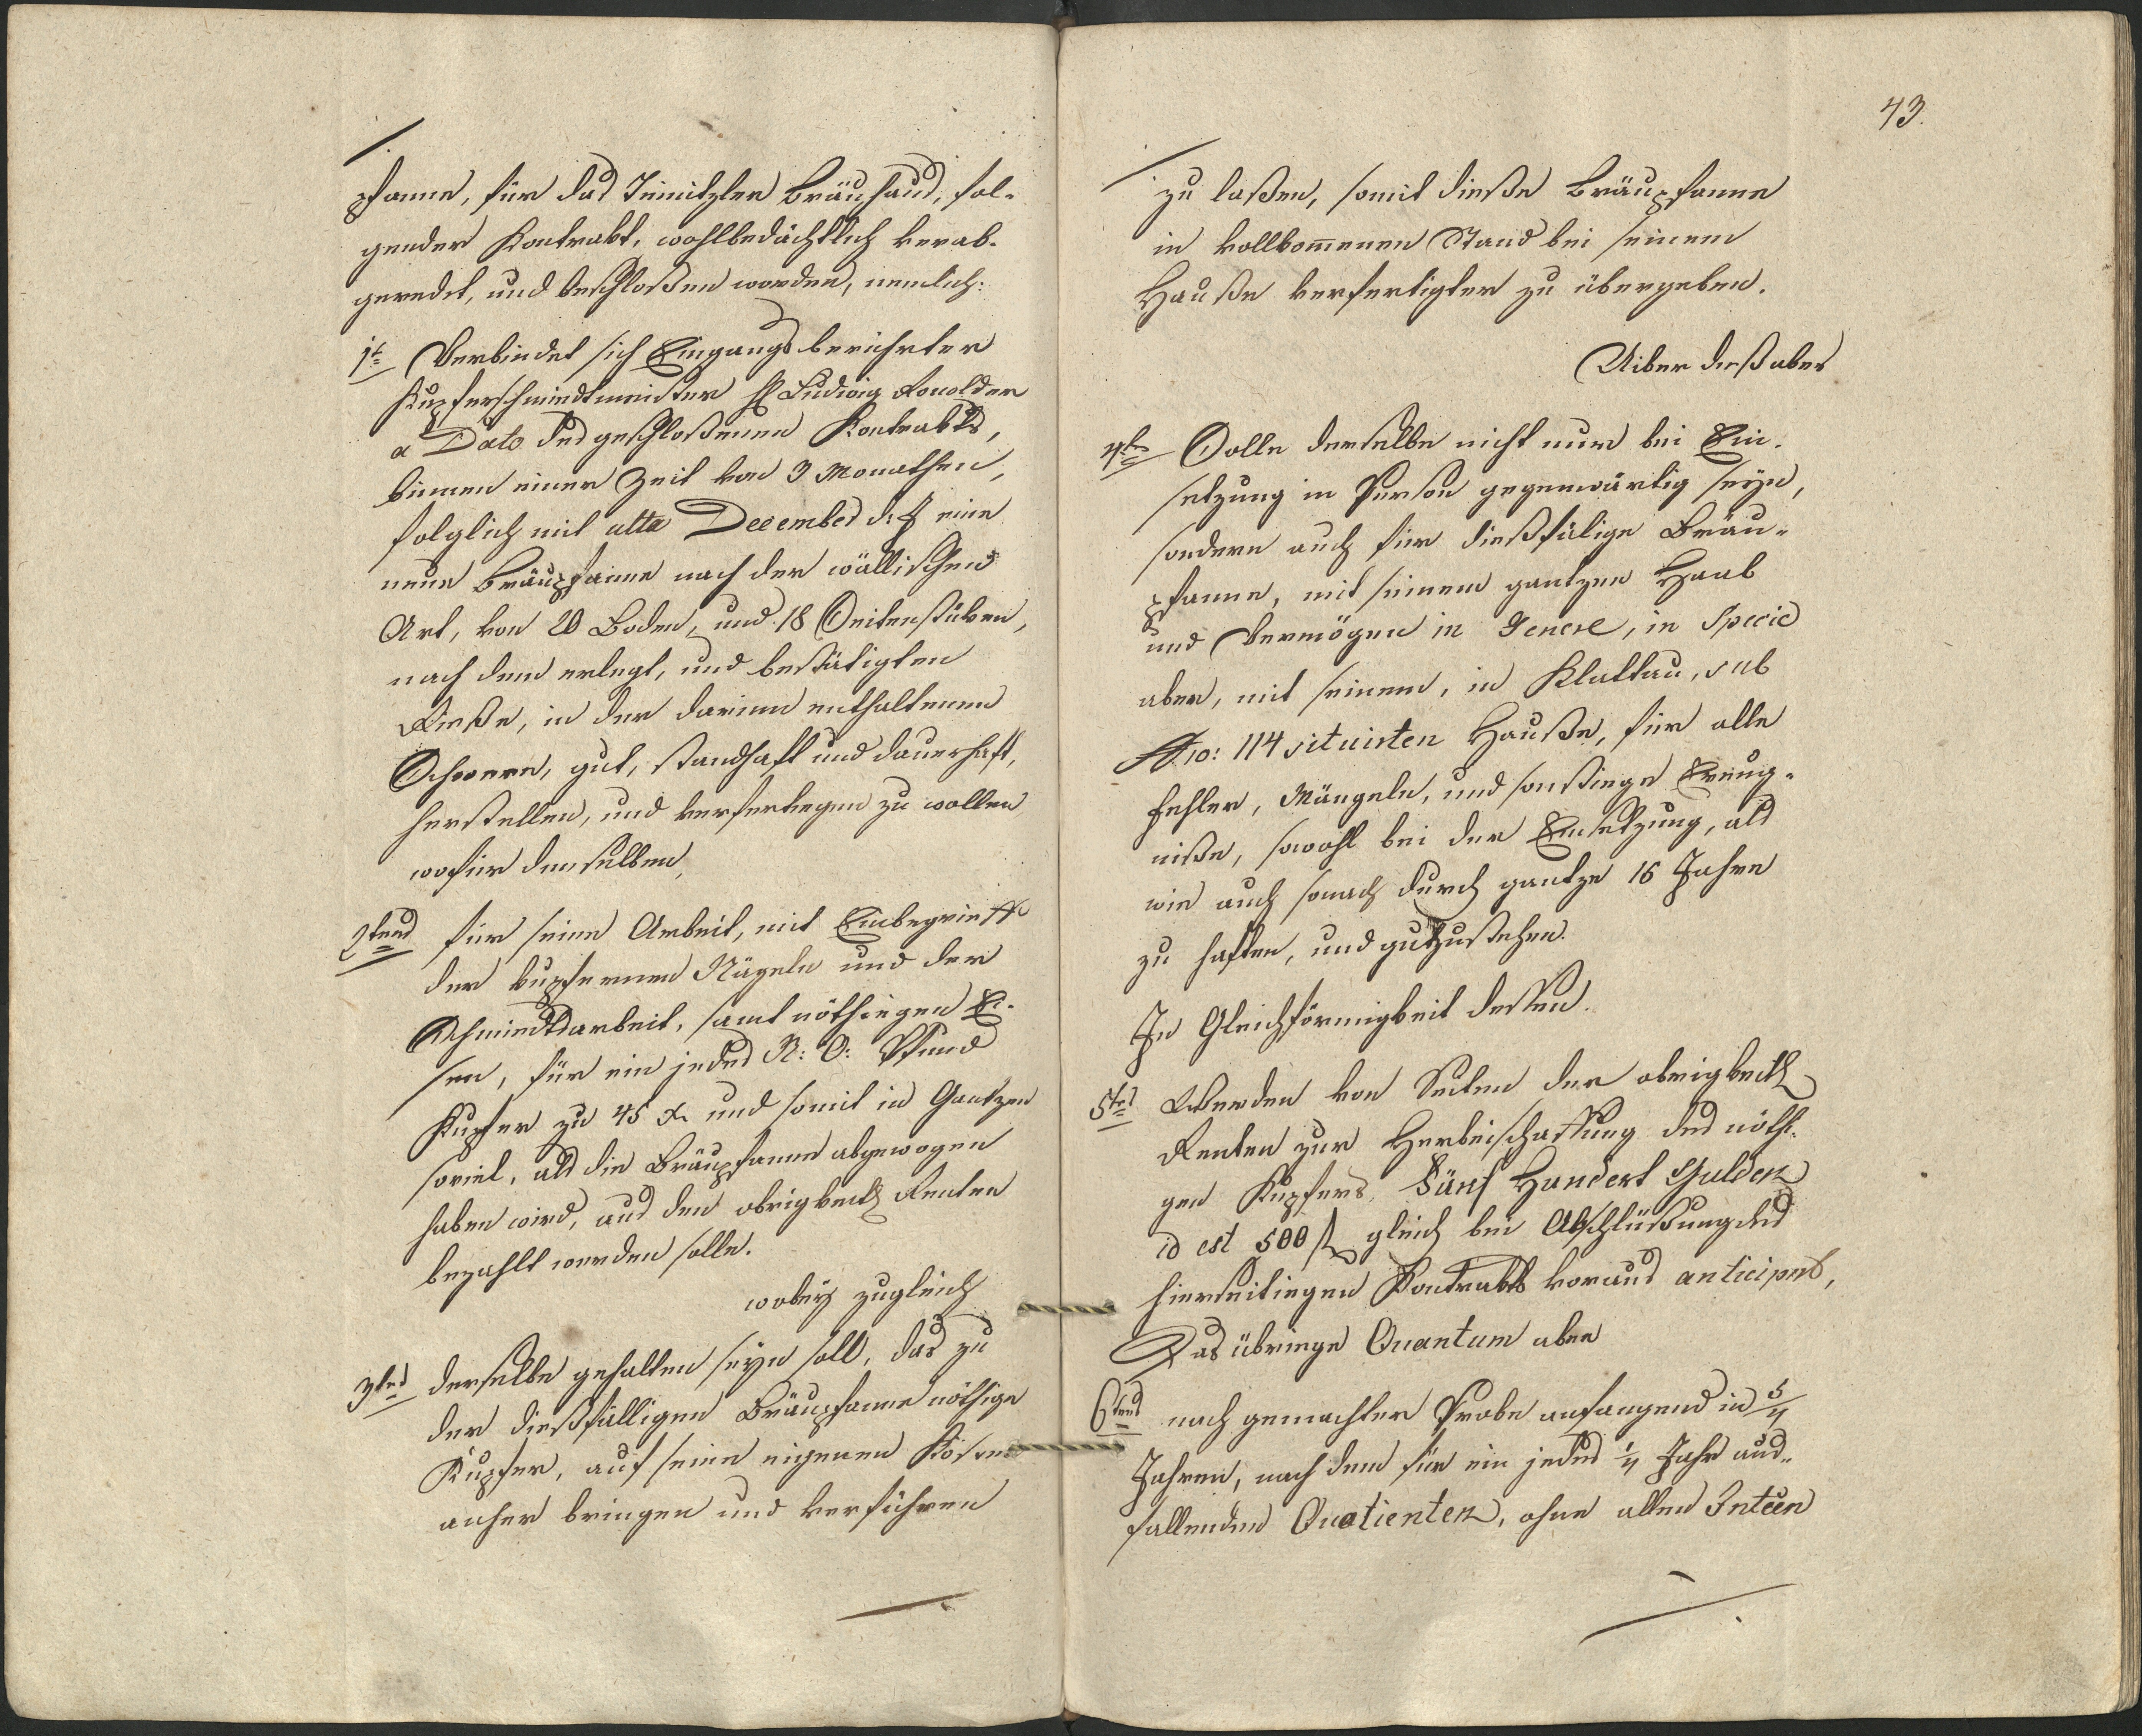 pfanne, für das Teinitzler Bräuhaus, fol-
gender Kontrakt, wohlbedächtlich verab-
geredet, und beschloßen worden, nemlich:
1t Verbindet sich Eingangs berührter
Kupferschmiedtmeister H Ludwig
a Dato des geschloßenen Kontrakts,
binnen einer Zeit von 3 Monathen,
folglich mit ulta December d: J eine
neue Bräupfanne nach der wällischen
Art, von 20 Boden, und 18 Seitenstüken,
nach dem erlegt, und bestätigten
Rieße, in der darinn enthaltenen
Schwere, gut, standhaft und dauerhaft,
herstellen, und verfertiegen zu wollen
wofür demselben,
2tens für seine Arbeit, mit Einbegrieff
der kupfernen Nägeln und der
Schmiedtsarbeit, samt nöthiegen Ei-
sen, für ein jedes N: O: Pfund
Kupfer zu 45 x und somit in Gantzen
soviel, als die Bräupfanne abgewogen
haben wird, aus den obrigkeitl Renten
bezahlt werden solle.
wobey zugleich
3tens derselbe gehalten seyn soll, das zu
der dießfälligen Bräupfanne nöthige
Kupfer, auf seine eigenen Kösten
anher bringen und verführen
43.
zu laßen, somit dieße Bräupfanne
in vollkommenen Stand bei seinem
Hauße verfertigter zu übergeben.
Uiber dieß aber
4tens Solle derselbe nicht nur bei Ein-
setzung in Person gegenwärtig seyn,
sondern auch für dießfälige Bräu-
pfanne, mit seinem gantzen Haab
und Vermögen in Genere, in Specie
aber, mit seinem, in Klattau, sub
Nro: 114 situirten Hauße, für alle
Fehler, Mängeln, und sonstiege Ereug-
niße, sowohl bei der Einsetzung, als
wie auch sonach durch gantze 16 Jahre
zu haften, und gutzustehen.
In Gleichförmigkeit dessen.
5tens Werden von Seiten der obrigkeitl
Renten zur Herbeischaffung des nöthi-
gen Kupfers, Fünf Hundert Gulden
id est 500 f gleich bei Abschlüßung des
hierseitiegen Kontrakts voraus anticipirt,
Das übriege Quantum aber
6tens nach gemachter Probe anfangend in 5/4
Jahren, nach dem für ein jedes 1/4 Jahr aus-
fallenden Quotienten, ohne allen Interes